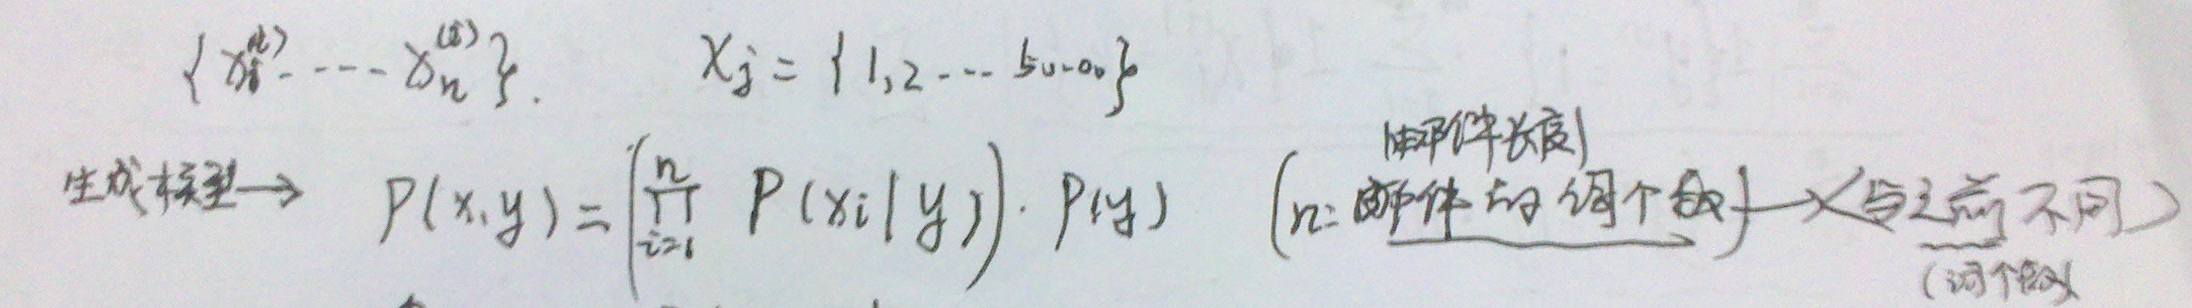 {x_1^{(i)} ---- x_n^{(i)}}. x_j = {1,2 --- 50000}
(邮件长度)
生成模型→ P(x,y) = (∏_{i=1}^{n} P(xi|y)) · P(y) (n: 邮件的词个数) → (与之前不同)
(词个数)